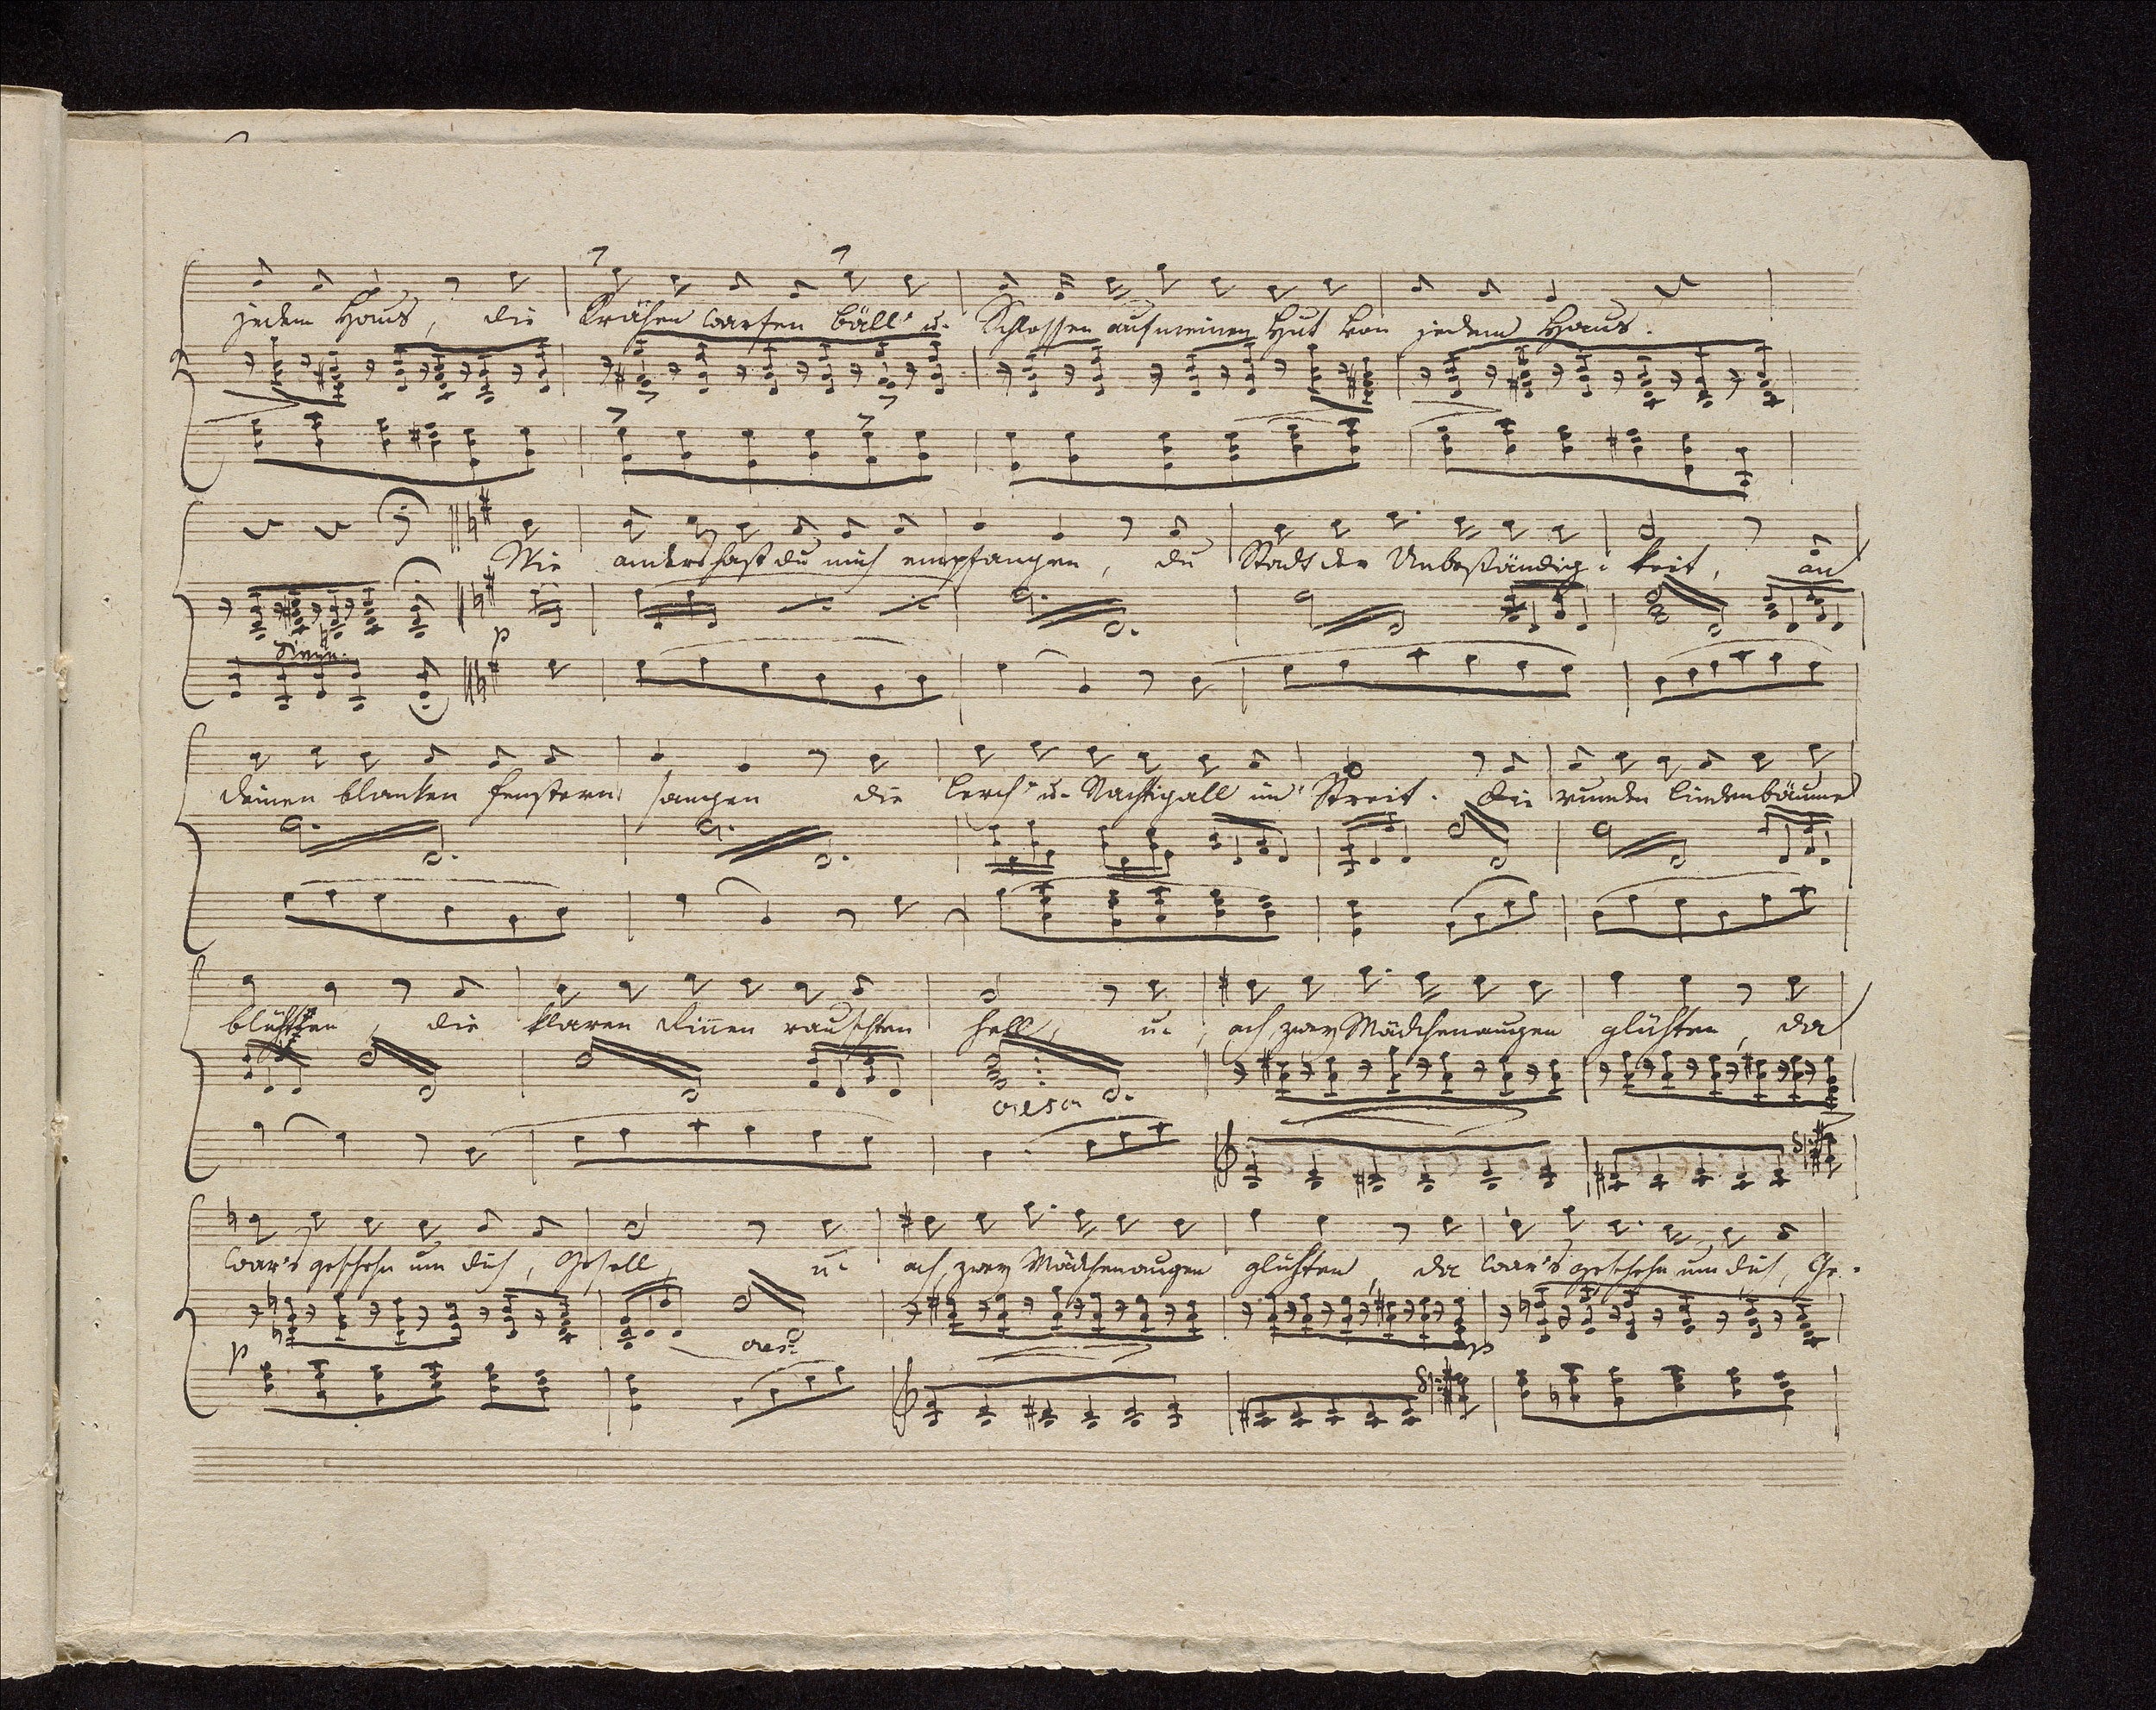 jedem Haus, die Krähen warfen Bäll' u. Schlossen auf meinen Hut von jedem Haus.
Wie anders hast du mich empfangen, du Stadt der Unbeständig- keit, an
dimin.
p
deinen blanken Fenstern sangen die Lerch' u. Nachtigall im Streit. Die runden Lindenbäume
blühten, die klaren Rinnen rauschten hell, u. ach, zwey Mädchenaugen glühten, da
cresc
war's geschehn um dich, Gesell, u. ach, zwey Mädchenaugen glühten, da war's geschehn um dich, Ge-
cres:
p
p